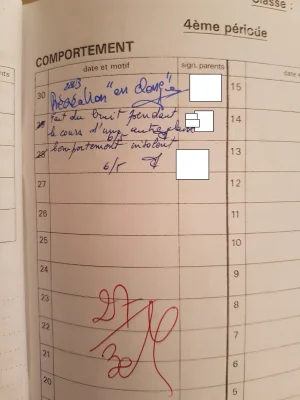 Classe :
4ème période
COMPORTEMENT
date et motif
sign. parents
date
30
Récréation "en classe"
15
fait du bruit pendant
14
le cours d'une autre
6/5
13
28 comportement insolent
6/5
27
12
26
11
25
10
24
9
23
8
22
7
21
6
20
5
27/30